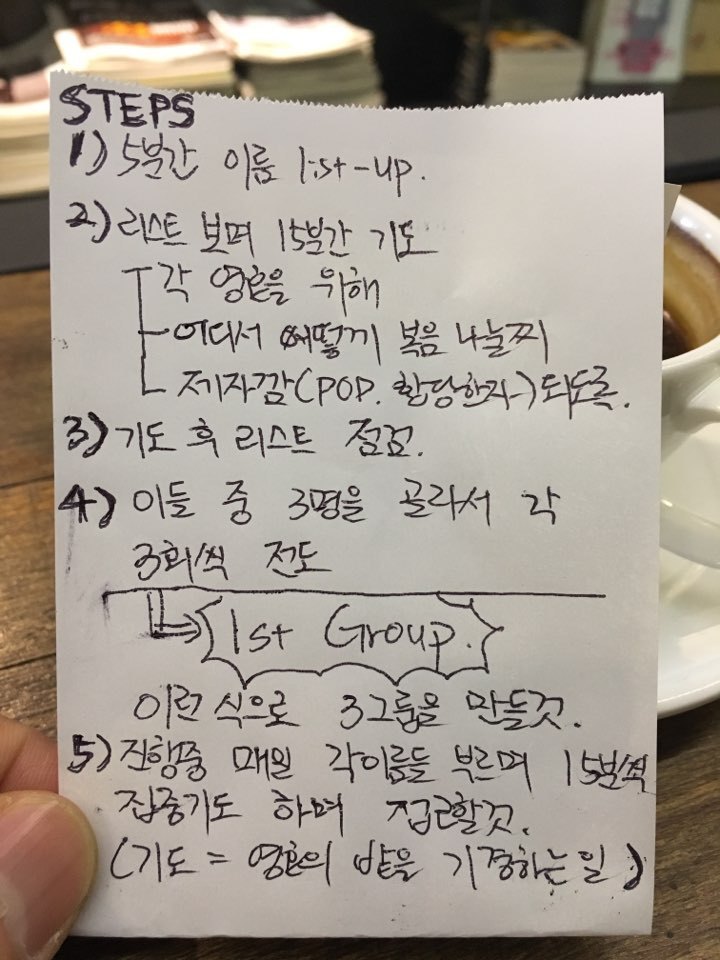 STEPS
1) 5분간 이름 list-up.
2) 리스트 보며 15분간 기도
각 영혼을 위해
어디서 어떻게 복음 나눌찌
제자감(POP. 합당한자) 되도록.
3) 기도 후 리스트 점검.
4) 이들 중 3명을 골라서 각
3회씩 전도
1st Group.
이런 식으로 3그룹을 만들것.
5) 진행중 매일 각이름들 부르며 15분씩
집중기도 하며 접근할것.
(기도 = 영혼의 밭을 기경하는 일)